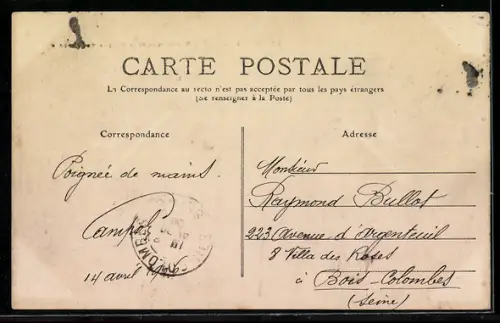 CARTE POSTALE
La Correspondance au recto n'est pas acceptée par tous les pays étrangers
(se renseigner à la Poste)
Correspondance
Poignée de mains.
14 avril
Adresse
Monsieur
Raymond Bullot
223 Avenue d'argenteuil
8 Villa des Roses
à Bois-Colombes
(Seine)